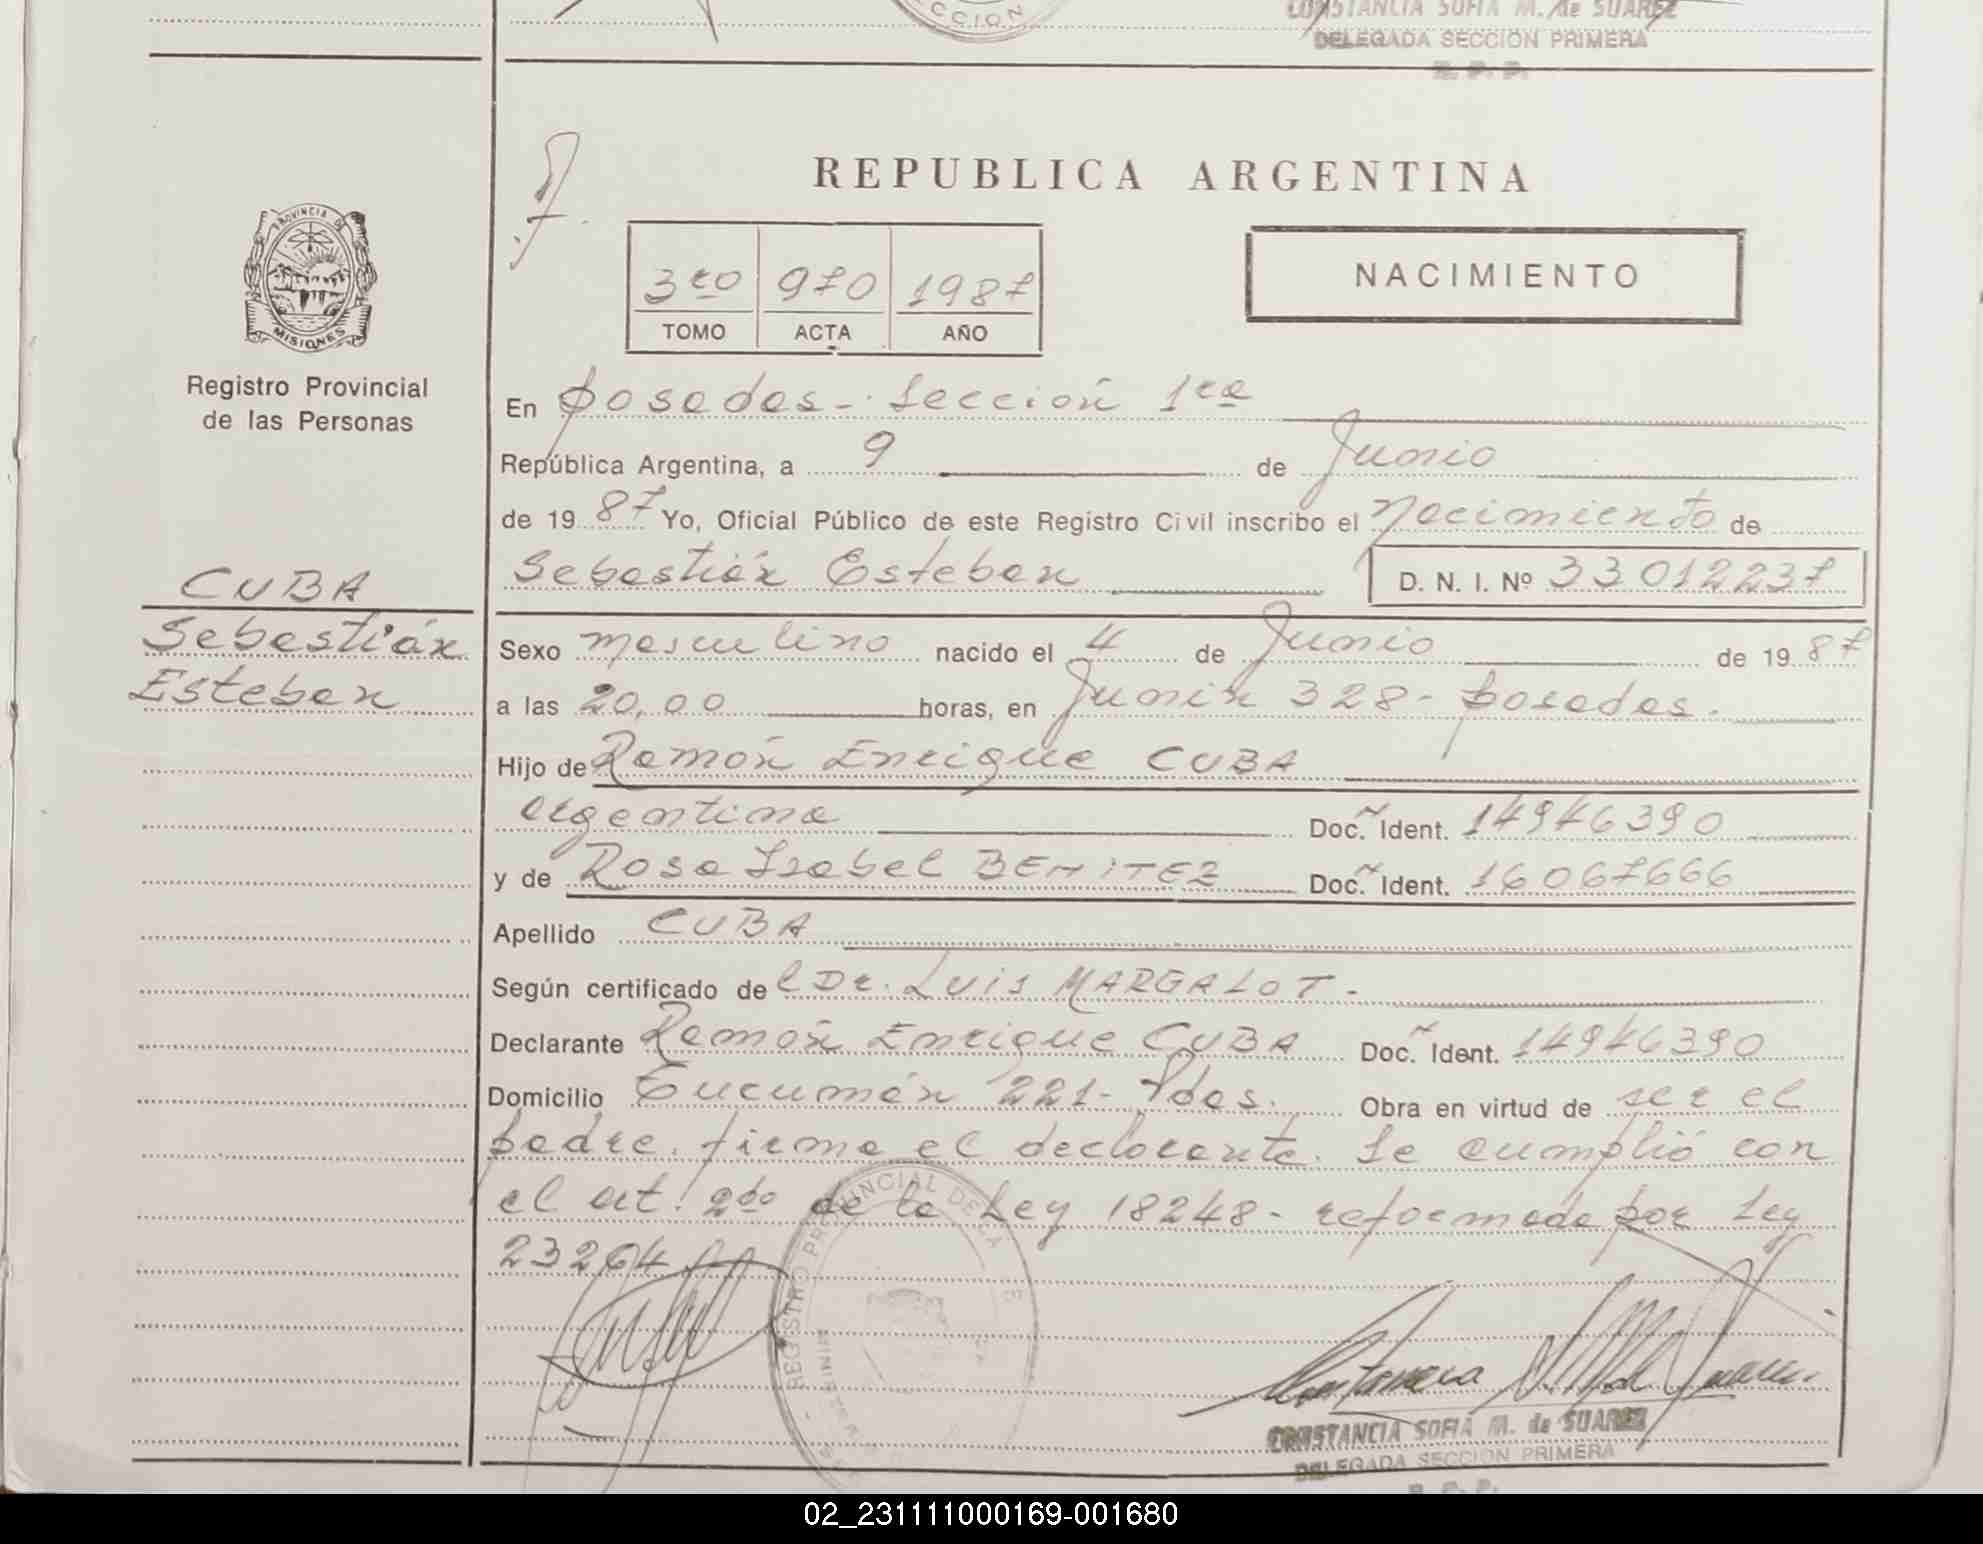 CCION
CONSTANCIA SOFIA M. de SUAREZ
DELEGADA SECCION PRIMERA
R. P. P.
REPUBLICA ARGENTINA
PROVINCIA DE
MISIONES
3ro 970 1987
TOMO ACTA AÑO
NACIMIENTO
Registro Provincial
de las Personas
En Posadas - Sección 1ra
República Argentina, a 9 de Junio
de 19 87 Yo, Oficial Público de este Registro Civil inscribo el Nacimiento de
Sebastián Esteban D. N. I. Nº 33012237
CUBA
Sebastián
Esteban
Sexo masculino nacido el 4 de Junio de 19 87
a las 20,00 horas, en Junín 328 - Posadas.
Hijo de Ramón Enrique CUBA
argentina Doc. Ident. 14946390
y de Rosa Isabel BENITEZ Doc. Ident. 16067666
Apellido CUBA
Según certificado de l Dr. Luis MARGALOT.
Declarante Ramón Enrique CUBA Doc. Ident. 14946390
Domicilio Tucumán 221 - Pdas. Obra en virtud de ser el
padre. firma el declarante. Se cumplió con
el art. 2do de la Ley 18248 - reformada por Ley
23264
REGISTRO PROVINCIAL DE LA
CONSTANCIA SOFIA M. de SUAREZ
DELEGADA SECCION PRIMERA
R. P. P.
02_231111000169-001680